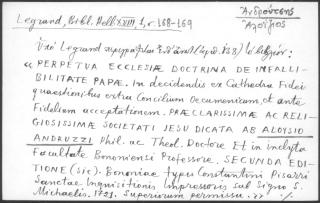 Ἀνδρούτσης
Ἀλοΐσιος
Legrand, Bibl. Hell. XVIII 1, σ. 168-169
Ὑπὸ Legrand περιγράφεται
« PERPETVA ECCLESIÆ DOCTRINA DE INFALLI-
BILITATE PAPÆ. In decidendis ex Cathedra Fidei
quaestionibus extra Concilium Oecumenicum, et ante
Fidelium acceptationem. PRÆCLARISSIMÆ AC RELI-
GIOSISSIMÆ SOCIETATI JESU DICATA AB ALOYSIO
ANDRUZZI Phil. ac Theol. Doctore Et in inclyta
Facultate Bononiensi Professore. SECUNDA EDI-
TIONE (sic). Bononiae typis Constantini Pisarri
Sanctae Inquisitionis Impressoris sub Signo S.
Michaelis. 1721. Superiorum permissu. »